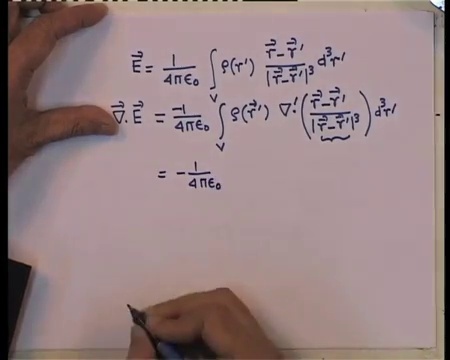 E⃗ = 1/4πε₀ ∫_V ρ(r') (r⃗ - r⃗')/|r⃗ - r⃗'|³ d³r'
∇⃗ · E⃗ = -1/4πε₀ ∫_V ρ(r⃗') ∇' · ( (r⃗ - r⃗')/|r⃗ - r⃗'|³ ) d³r'
= - 1/4πε₀